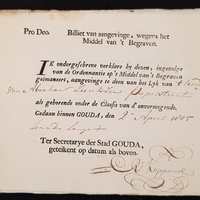 Pro Deo. Billiet van aangevinge, wegens het
Middel van 't Begraven.
IK ondergeschreve verklare by desen, ingevolge
van de Ordonnantie op 't Middel van 't Begraven
geëmaneert, aangevinge te doen van het Lyk van
Abraham
als gehorende onder de Classis van d'onvermogende.
Gedaan binnen GOUDA, den 9 April 1805
Ter Secretarye der Stad GOUDA,
geteikent op datum als boven.